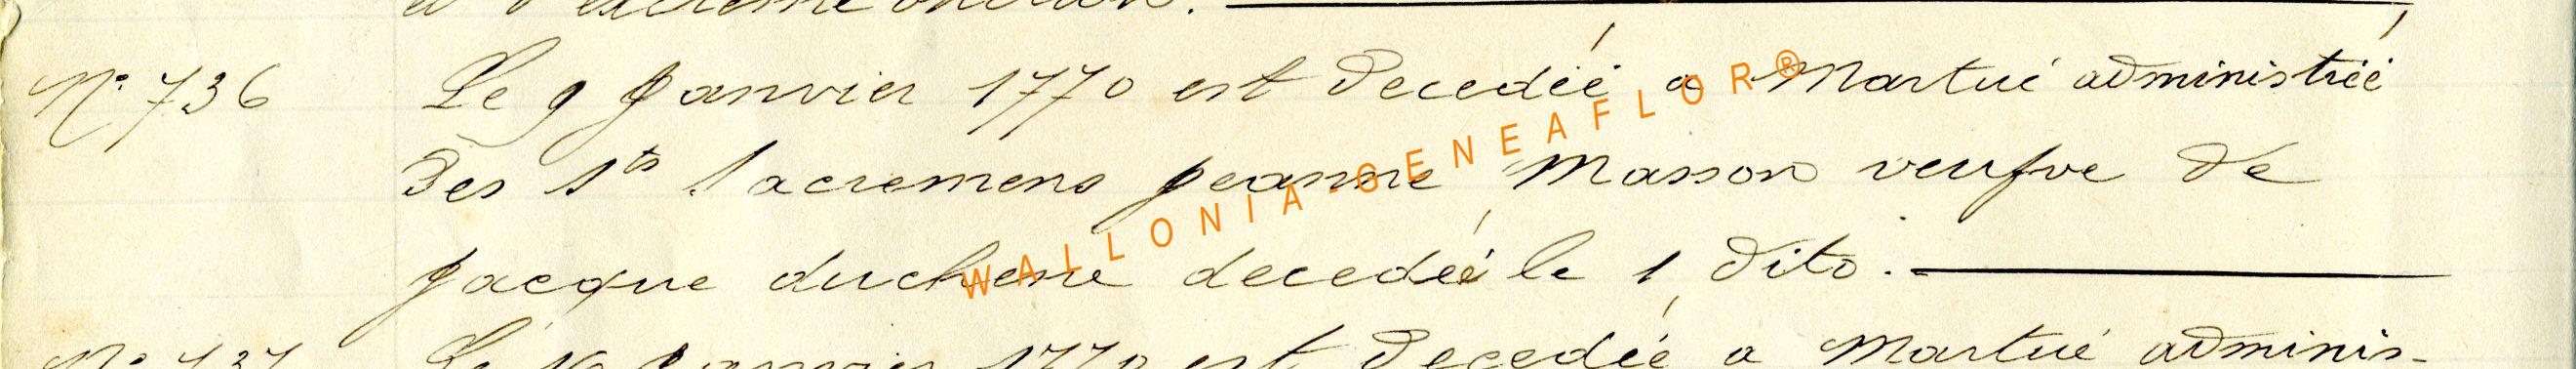 et d'extreme onction.
N° 736 Le 9 Janvier 1770 est decedéé a Martué administréé
des Sts Sacremens jeanne Masson veufve de
jacque duchene decedéé le 1 dito.
WALLONIA-GENEAFLOR®
N° 737 Le 16 Janvier 1770 est decedéé a Martué adminis-